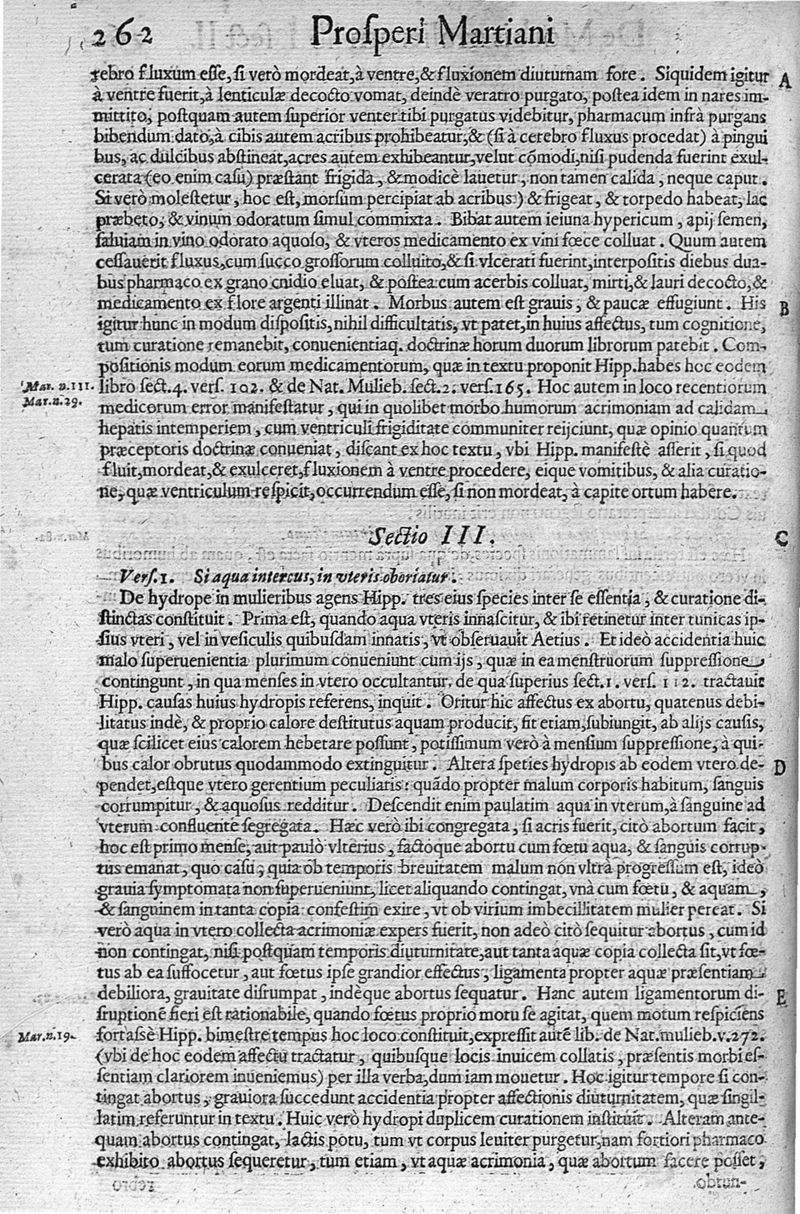 262 Prosperi Martiani
rebro fluxum esse, si verò mordeat, à ventre, & fluxionem diuturnam fore. Siquidem igitur A
à ventre fuerit, à lenticulæ decocto vomat, deindè veratro purgato, postea idem in nares im-
mittito, postquam autem superior venter tibi purgatus videbitur, pharmacum infrà purgans
bibendum dato, à cibis autem acribus prohibeatur, & (si à cerebro fluxus procedat) à pingui
bus, ac dulcibus abstineat, acres autem exhibeantur, velut cōmodi, nisi pudenda fuerint exul-
cerata (eo enim casu) præstant frigida, & modicè lauetur, non tamen calida, neque caput.
Si verò molestetur, hoc est, morsum percipiat ab acribus) & frigeat, & torpedo habeat, lac
præbeto, & vinum odoratum simul commixta. Bibat autem ieiuna hypericum, apij semen,
saluiam in vino odorato aquoso, & vteros medicamento ex vini fœce colluat. Quum autem
cessauerit fluxus, cum succo grossorum colluito, & si vlcerati fuerint, interpositis diebus dua-
bus pharmaco ex grano cnidio eluat, & postea cum acerbis colluat, mirti, & lauri decocto, &
medicamento ex flore argenti illinat. Morbus autem est grauis, & paucæ effugiunt. His B
igitur hunc in modum dispositis, nihil difficultatis, vt patet, in huius affectus, tum cognitione,
tum curatione remanebit, conuenientiaq. doctrinæ horum duorum librorum patebit. Com-
positionis modum eorum medicamentorum, quæ in textu proponit Hipp. habes hoc eodem
Mar. n. 111. libro sect. 4. vers. 102. & de Nat. Mulieb. sect. 2. vers. 165. Hoc autem in loco recentiorum
Mar. n. 29. medicorum error manifestatur, qui in quolibet morbo humorum acrimoniam ad calidam
hepatis intemperiem, cum ventriculi frigiditate communiter reijciunt, quæ opinio quantum
præceptoris doctrinæ conueniat, discant ex hoc textu, vbi Hipp. manifestè asserit, si quod
fluit, mordeat, & exulceret, fluxionem à ventre procedere, eique vomitibus, & alia curatio-
ne, quæ ventriculum respicit, occurrendum esse, si non mordeat, à capite ortum habere.
Sectio III. C
Vers. 1. Si aqua intercus, in vteris oboriatur.
De hydrope in mulieribus agens Hipp. tres eius species inter se essentia, & curatione di-
stinctas constituit. Prima est, quando aqua vteris innascitur, & ibi retinetur inter tunicas ip-
sius vteri, vel in vesiculis quibusdam innatis, vt obseruauit Aetius. Et ideò accidentia huic
malo superuenientia plurimum conueniunt cum ijs, quæ in ea menstruorum suppressione
contingunt, in qua menses in vtero occultantur, de qua superius sect. 1. vers. 112. tractauit
Hipp. causas huius hydropis referens, inquit. Oritur hic affectus ex abortu, quatenus debi-
litatus indè, & proprio calore destitutus aquam producit, fit etiam, subiungit, ab alijs causis,
quæ scilicet eius calorem hebetare possunt, potissimum verò à mensium suppressione, à qui-
bus calor obrutus quodammodo extinguitur. Altera speties hydropis ab eodem vtero de- D
pendet, estque vtero gerentium peculiaris: quādo propter malum corporis habitum, sanguis
corrumpitur, & aquosus redditur. Descendit enim paulatim aqua in vterum, à sanguine ad
vterum confluente segregata. Hæc verò ibi congregata, si acris fuerit, citò abortum facit,
hoc est primo mense, aut paulò vlterius, factoque abortu cum fœtu aqua, & sanguis corrup-
tus emanat, quo casu, quia ob temporis breuitatem malum non vltrà progressum est, ideò
grauia symptomata non superueniunt, licet aliquando contingat, vnà cum fœtu, & aquam,
& sanguinem in tanta copia confestim exire, vt ob virium imbecillitatem mulier pereat. Si
verò aqua in vtero collecta acrimoniæ expers fuerit, non adeò citò sequitur abortus, cum id
non contingat, nisi postquam temporis diuturnitate, aut tanta aquæ copia collecta sit, vt fœ-
tus ab ea suffocetur, aut fœtus ipse grandior effectus, ligamenta propter aquæ præsentiam
debiliora, grauitate disrumpat, indèque abortus sequatur. Hanc autem ligamentorum di- E
sruptionē fieri est rationabile, quando fœtus proprio motu se agitat, quem motum respiciens
Mar. n. 19. fortassè Hipp. bimestre tempus hoc loco constituit, expressit autē lib. de Nat. mulieb. v. 272.
(vbi de hoc eodem affectu tractatur, quibusque locis inuicem collatis, præsentis morbi es-
sentiam clariorem inueniemus) per illa verba, dum iam mouetur. Hoc igitur tempore si con-
tingat abortus, grauiora succedunt accidentia propter affectionis diuturnitatem, quæ singil-
latim referuntur in textu. Huic verò hydropi duplicem curationem instituit. Alteram ante-
quam abortus contingat, lactis potu, tum vt corpus leuiter purgetur, nam fortiori pharmaco
exhibito abortus sequeretur, tum etiam, vt aquæ acrimonia, quæ abortum facere posset,